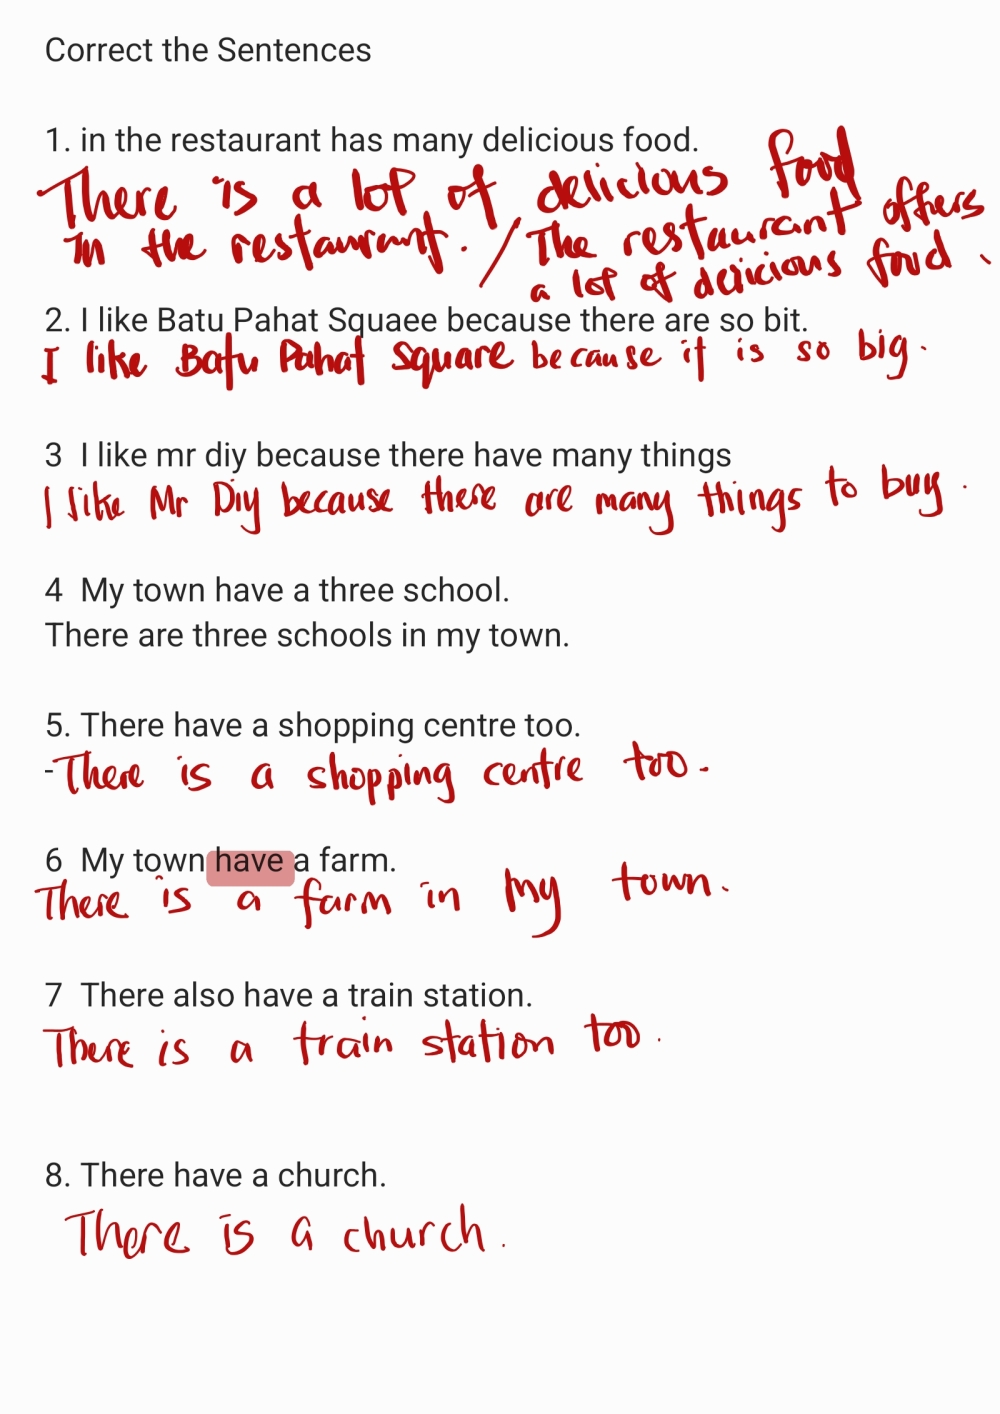 Correct the Sentences
1. in the restaurant has many delicious food.
There is a lot of delicious food
in the restaurant. / The restaurant offers
a lot of delicious food.
2. I like Batu Pahat Squaee because there are so bit.
I like Batu Pahat Square because it is so big.
3 I like mr diy because there have many things
I like Mr Diy because there are many things to buy.
4 My town have a three school.
There are three schools in my town.
5. There have a shopping centre too.
-There is a shopping centre too.
6 My town have a farm.
There is a farm in my town.
7 There also have a train station.
There is a train station too.
8. There have a church.
There is a church.